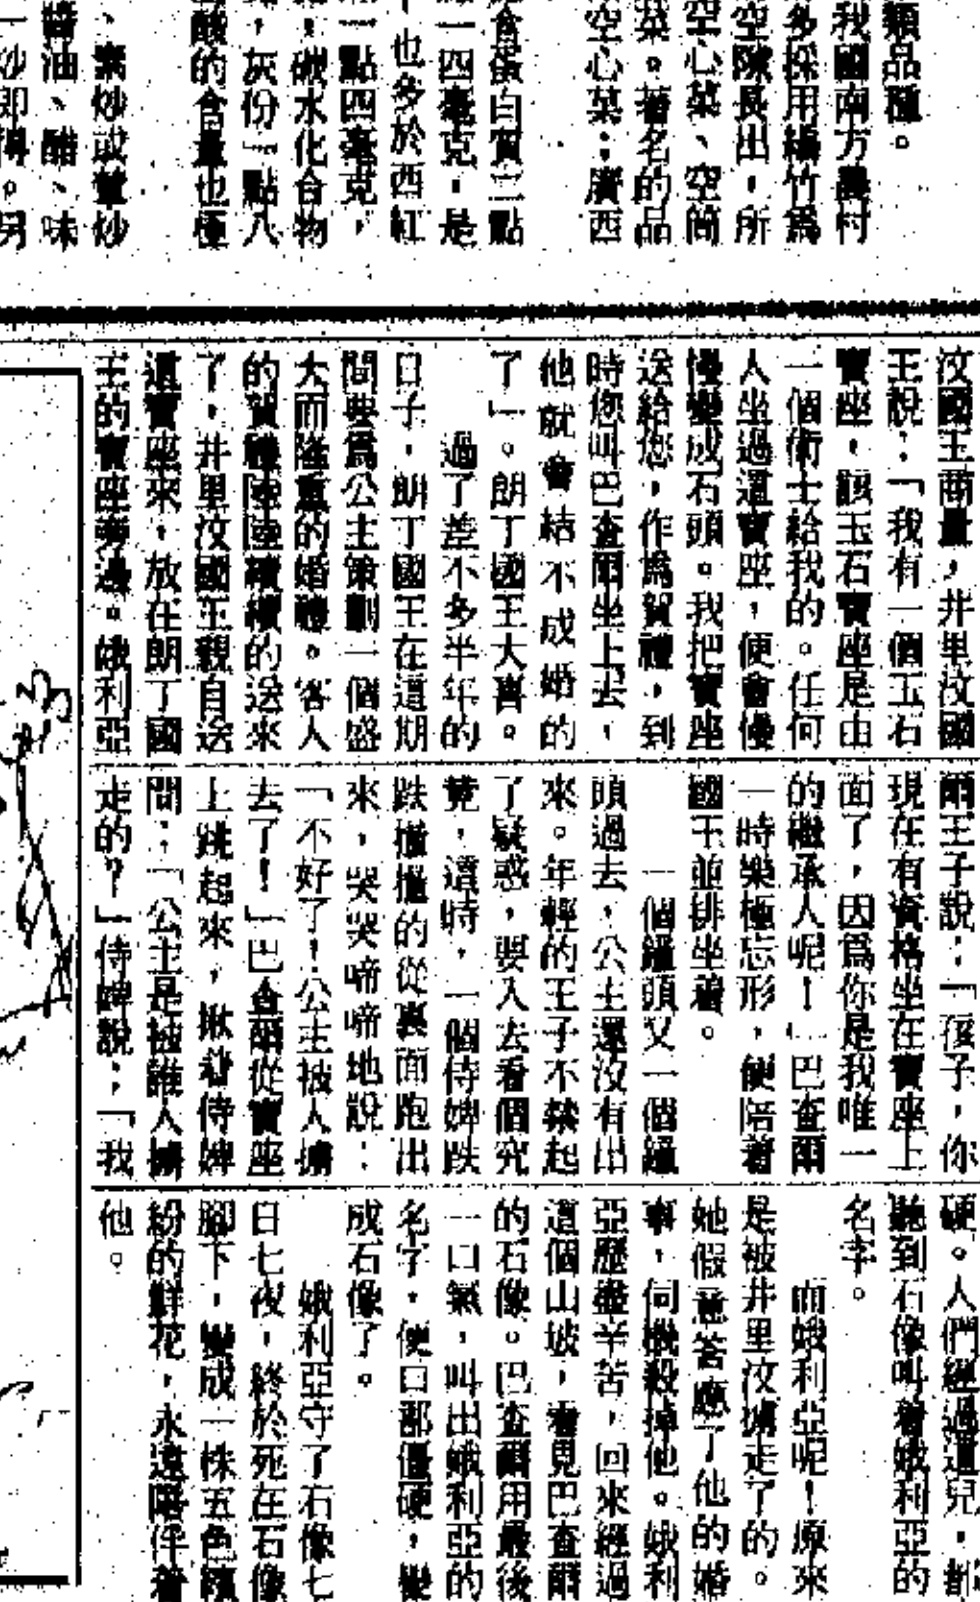 類品種。
我國南方農村
多採用橘竹爲
空隙長出，所
空心菜、空筒
菜。著名的品
空心菜：廣西
食蛋白質三點
一四毫克，是
，也多於西紅
一點四毫克，
，碳水化合物
，灰份一點八
酸的含量也極
、素炒或葷炒
醬油、醋、味
一炒即得。另
汶國王商量，井里汶國
王說：「我有一個玉石
寶座，該玉石寶座是由
一個術士給我的。任何
人坐過這寶座，便會慢
慢變成石頭。我把寶座
送給您，作爲賀禮，到
時您叫巴查爾坐上去，
他就會結不成婚的
了」。朗丁國王大喜。
過了差不多半年的
日子，朗丁國王在這期
間要爲公主策劃一個盛
大而隆重的婚禮。客人
的賀禮陸陸續續的送來
了，井里汶國王親自送
這寶座來，放在朗丁國
王的寶座旁邊。娥利亞
爾王子說：「孩子，你
現在有資格坐在寶座上
面了，因爲你是我唯一
的繼承人呢！」巴查爾
一時樂極忘形，便陪着
國王並排坐着。
一個鐘頭又一個鐘
頭過去，公主還沒有出
來。年輕的王子不禁起
了疑惑，要入去看個究
竟，這時，一個侍婢跌
跌撞撞的從裏面跑出
來，哭哭啼啼地說：
「不好了！公主被人擄
去了！」巴查爾從寶座
上跳起來，揪着侍婢
問：「公主是被誰人擄
走的？」侍婢說：「我
硬。人們經過這兒，都
聽到石像叫着娥利亞的
名字。
而娥利亞呢！原來
是被井里汶擄走了的。
她假意答應了他的婚
事，伺機殺掉他。娥利
亞歷盡辛苦，回來經過
這個山坡，看見巴查爾
的石像。巴查爾用最後
一口氣，叫出娥利亞的
名字，便口都僵硬，變
成石像了。
娥利亞守了石像七
日七夜，終於死在石像
腳下，變成一株五色繽
紛的鮮花，永遠陪伴着
他。